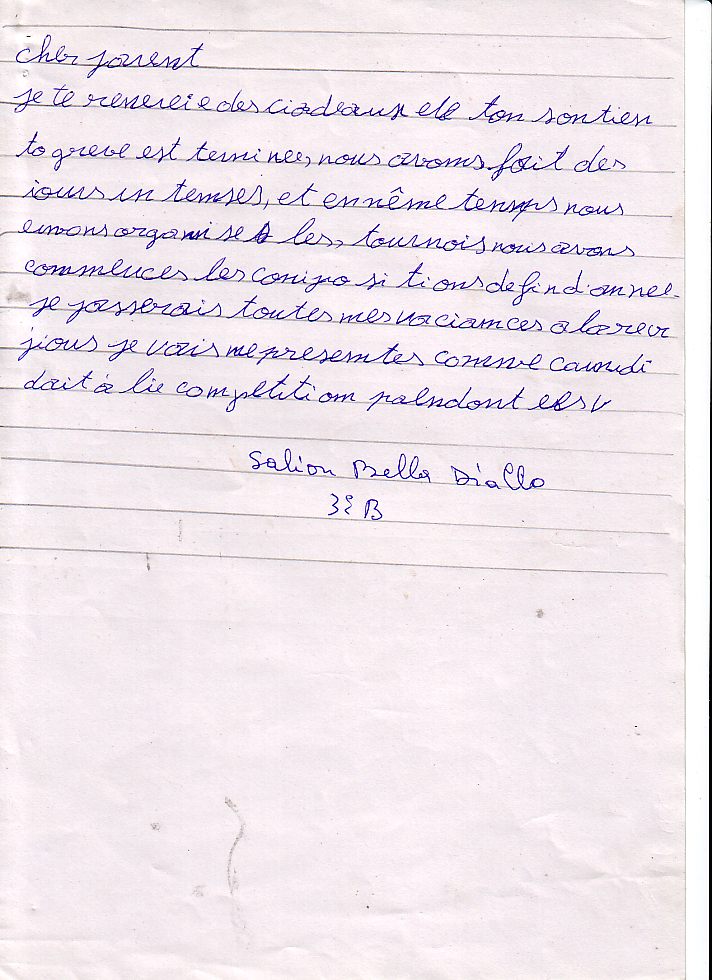 cher parent
je te remercie des ciadeaux et ton sontien
ta greve est terminee, nous avoms fait des
iours in temses, et en même temps nous
avons organise les, tournois nous avons
commences les compo si tions de fin d'annee.
je passerais toutes mes vaciances a la
jious je vais me presemtes comme camdi
dait à la competition
Saliou Bella Diallo
3è B